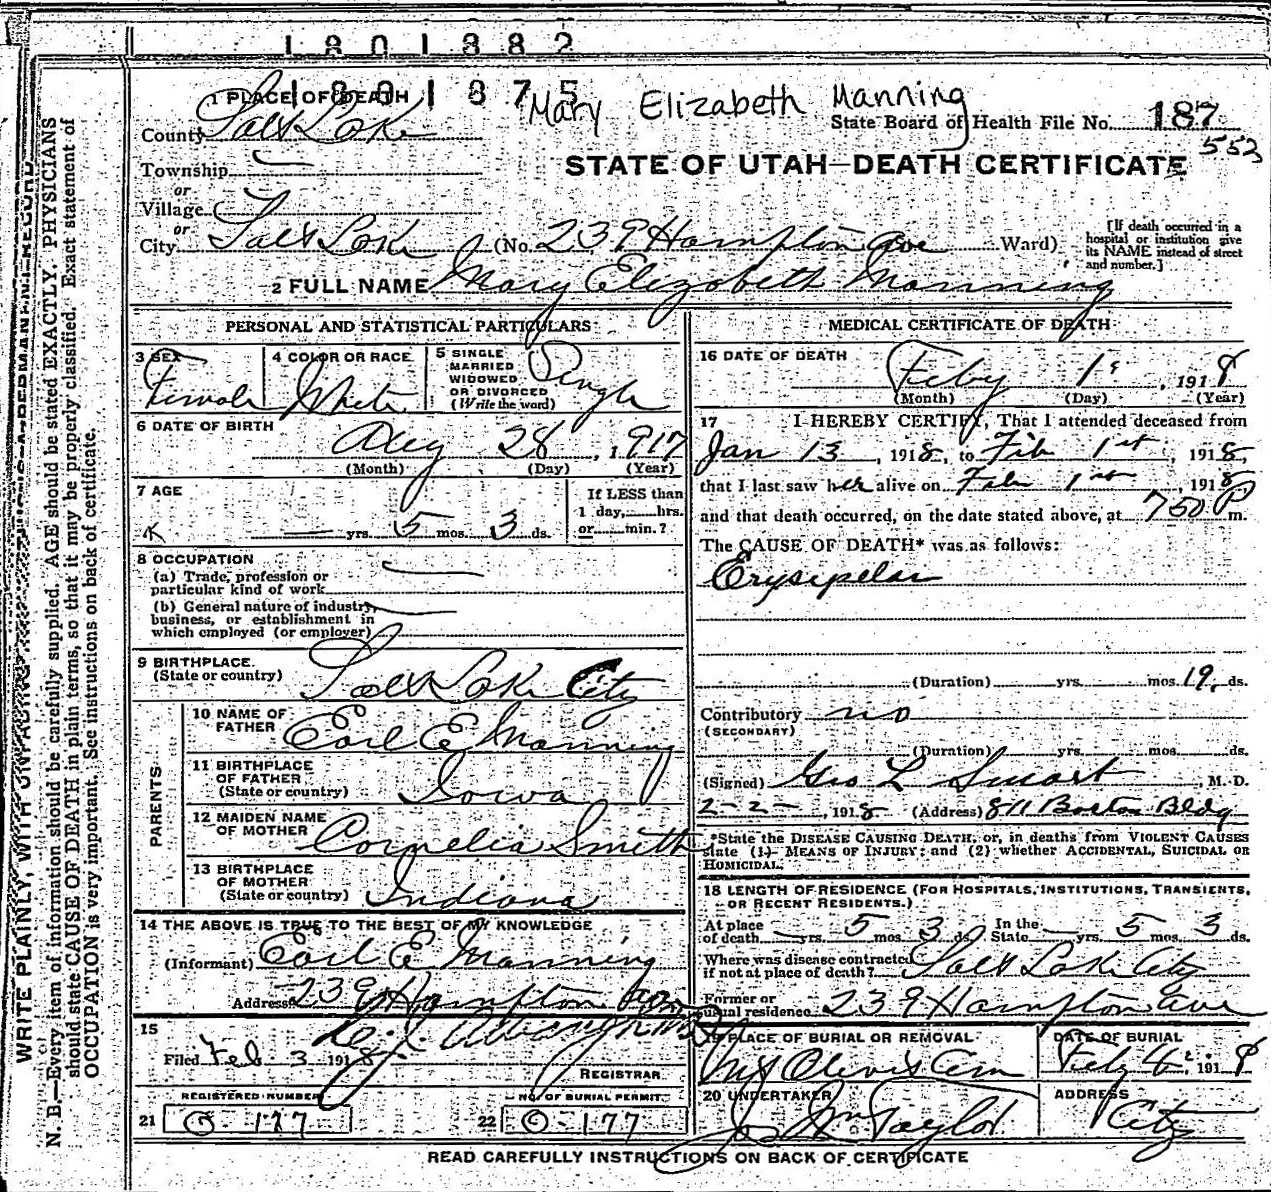 1801882
1801875
Mary Elizabeth Manning
1 PLACE OF DEATH
County Salt Lake
State Board of Health File No. 187
552
Township
or
Village
or
City Salt Lake (No. 239 Hampton Ave Ward)
STATE OF UTAH—DEATH CERTIFICATE
[If death occurred in a
hospital or institution give
its NAME instead of street
and number.]
2 FULL NAME Mary Elizabeth Manning
PERSONAL AND STATISTICAL PARTICULARS
3 SEX
Female
4 COLOR OR RACE
White
5 SINGLE
MARRIED
WIDOWED
OR DIVORCED
(Write the word)
Single
6 DATE OF BIRTH
Aug 28, 1917
(Month) (Day) (Year)
7 AGE
— yrs. 5 mos. 3 ds.
If LESS than
1 day, hrs.
or min.?
8 OCCUPATION
(a) Trade, profession or
particular kind of work
(b) General nature of industry,
business, or establishment in
which employed (or employer)
9 BIRTHPLACE.
(State or country)
Salt Lake City
PARENTS
10 NAME OF
FATHER
Earl E Manning
11 BIRTHPLACE
OF FATHER
(State or country)
Iowa
12 MAIDEN NAME
OF MOTHER
Cornelia Smith
13 BIRTHPLACE
OF MOTHER
(State or country)
Indiana
14 THE ABOVE IS TRUE TO THE BEST OF MY KNOWLEDGE
(Informant) Earl E Manning
Address 239 Hampton Ave
15
Filed Feb 3 1918
REGISTRAR
REGISTERED NUMBER
21 O-177
NO. OF BURIAL PERMIT
22 O-177
MEDICAL CERTIFICATE OF DEATH
16 DATE OF DEATH
Feby 1st, 1918
(Month) (Day) (Year)
17 I HEREBY CERTIFY, That I attended deceased from
Jan 13, 1918, to Feb 1st, 1918,
that I last saw her alive on Feb 1st, 1918
and that death occurred, on the date stated above, at 750 P m.
The CAUSE OF DEATH* was as follows:
Erysipelas
(Duration) yrs. mos. 19. ds.
Contributory no
(SECONDARY)
(Duration) yrs. mos. ds.
(Signed) Geo L Smart, M. D.
2-2-, 1918 (Address) 811 Boston Bldg
*State the DISEASE CAUSING DEATH, or, in deaths from VIOLENT CAUSES
state (1) MEANS OF INJURY; and (2) whether ACCIDENTAL, SUICIDAL OR
HOMICIDAL.
18 LENGTH OF RESIDENCE (FOR HOSPITALS, INSTITUTIONS, TRANSIENTS,
OR RECENT RESIDENTS.)
At place
of death — yrs. 5 mos. 3 ds. In the
State — yrs. 5 mos. 3 ds.
Where was disease contracted
if not at place of death? Salt Lake City
Former or
usual residence 239 Hampton Ave
19 PLACE OF BURIAL OR REMOVAL
Mt Olivet Cem
DATE OF BURIAL
Feby 4, 1918
20 UNDERTAKER
Jos Wm Taylor
ADDRESS
City
READ CAREFULLY INSTRUCTIONS ON BACK OF CERTIFICATE
WRITE PLAINLY, WITH UNFADING INK—THIS IS A PERMANENT RECORD
N. B.—Every item of information should be carefully supplied. AGE should be stated EXACTLY. PHYSICIANS
should state CAUSE OF DEATH in plain terms, so that it may be properly classified. Exact statement of
OCCUPATION is very important. See instructions on back of certificate.